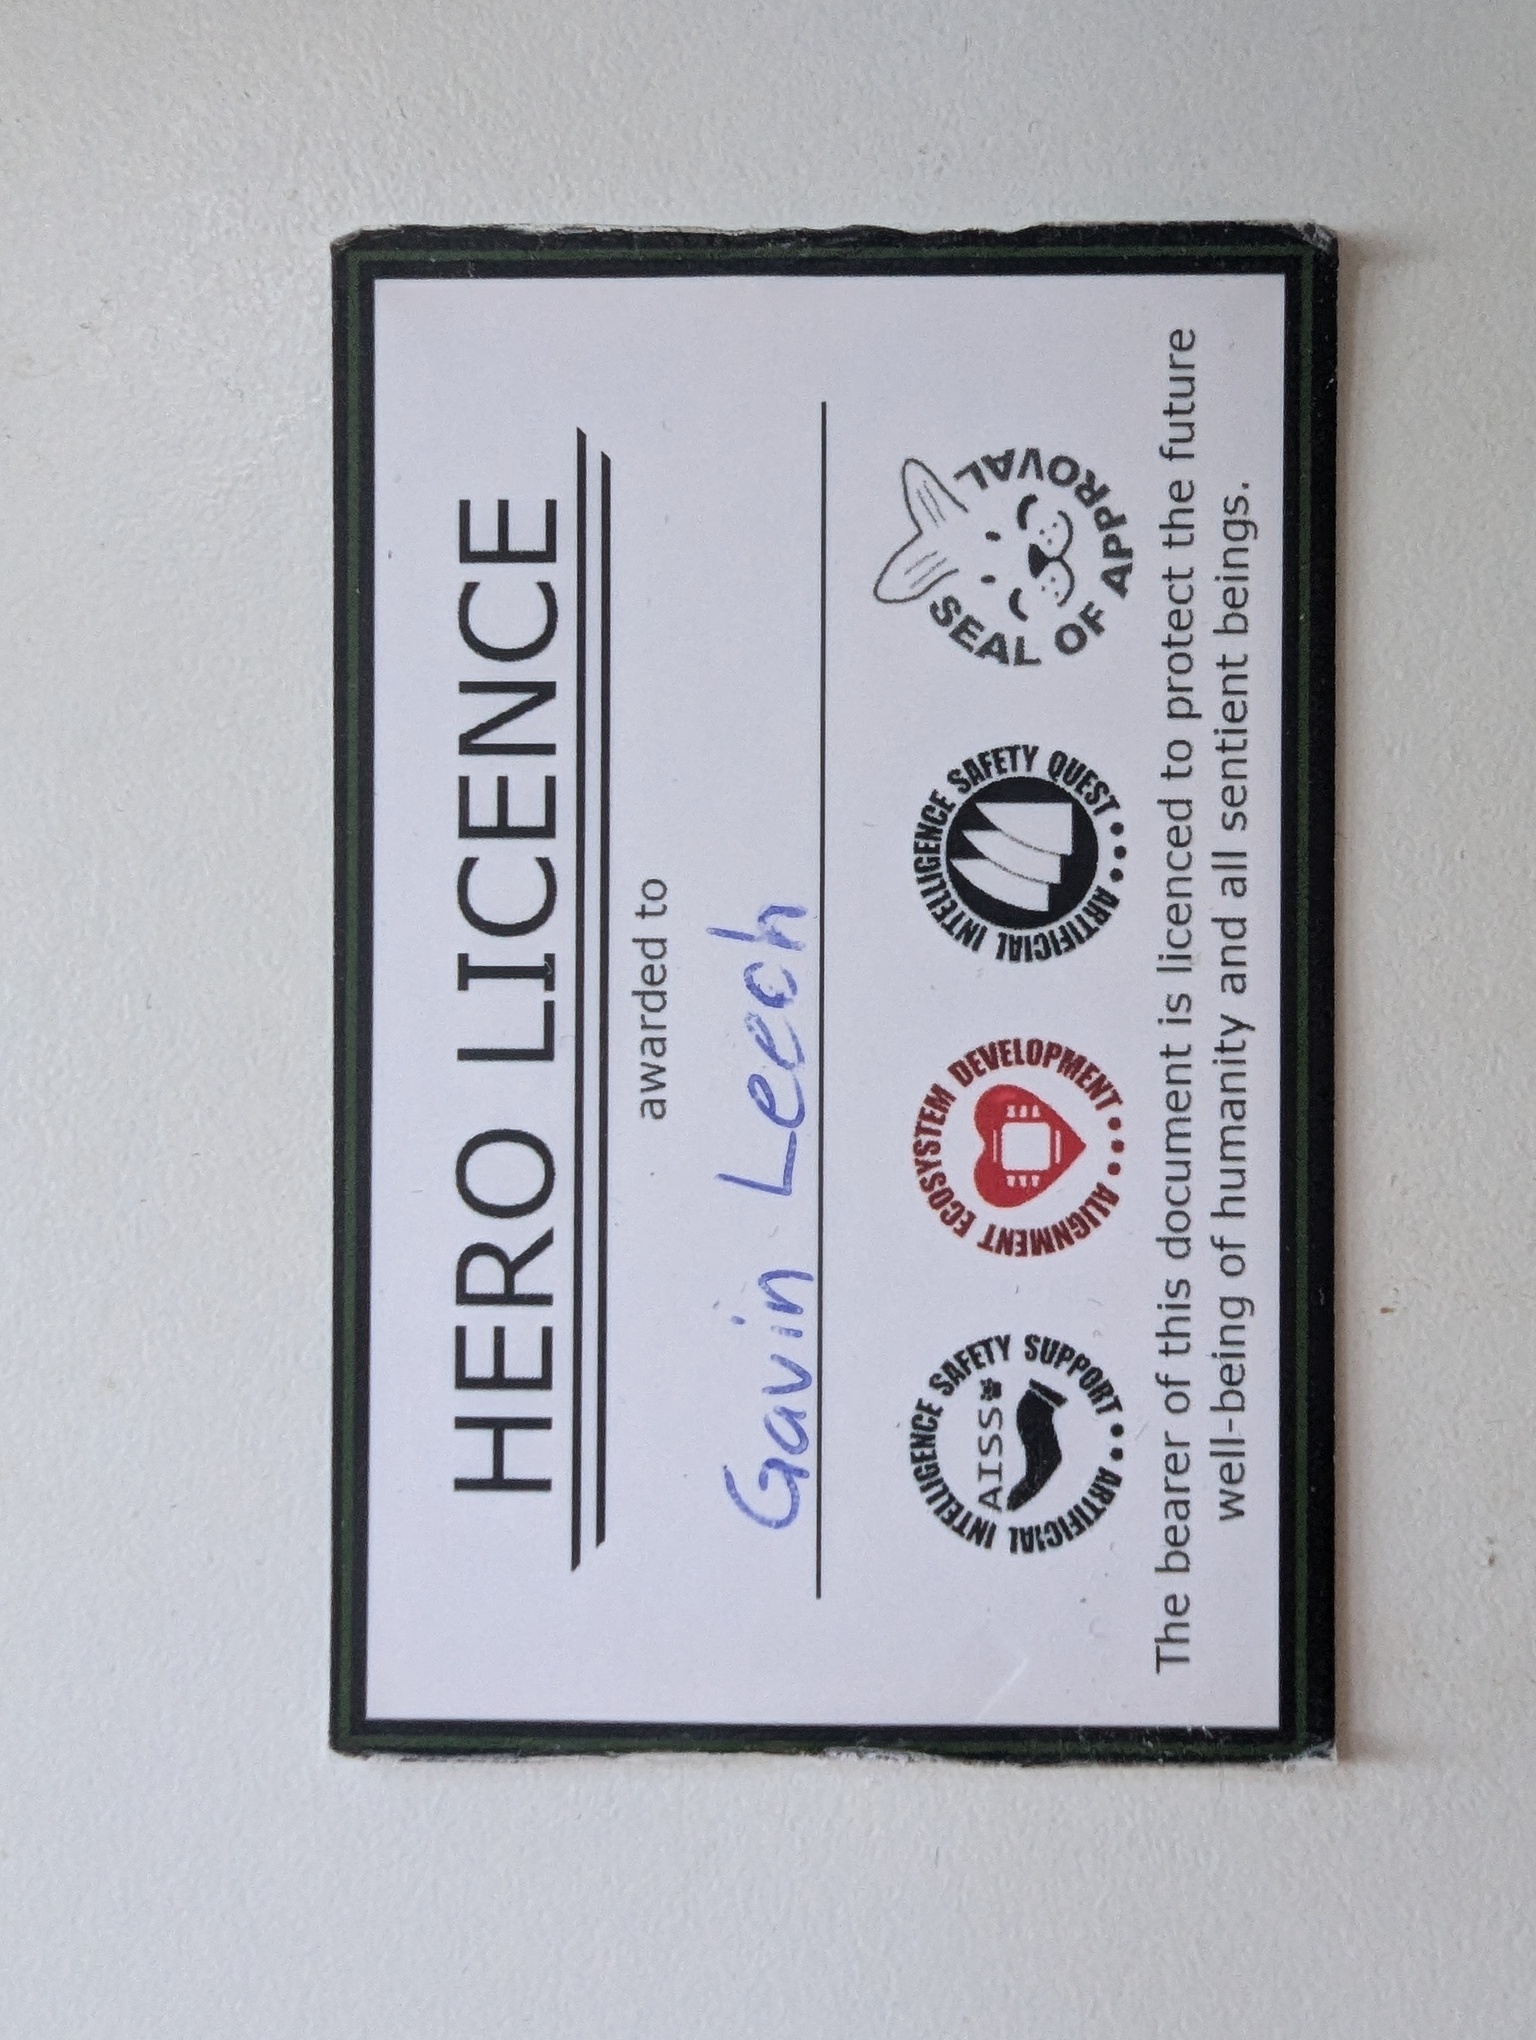 HERO LICENCE
awarded to
Gavin Leech
ARTIFICIAL INTELLIGENCE SAFETY SUPPORT
AISS
ALIGNMENT ECOSYSTEM DEVELOPMENT
ARTIFICIAL INTELLIGENCE SAFETY QUEST
SEAL OF APPROVAL
The bearer of this document is licenced to protect the future
well-being of humanity and all sentient beings.